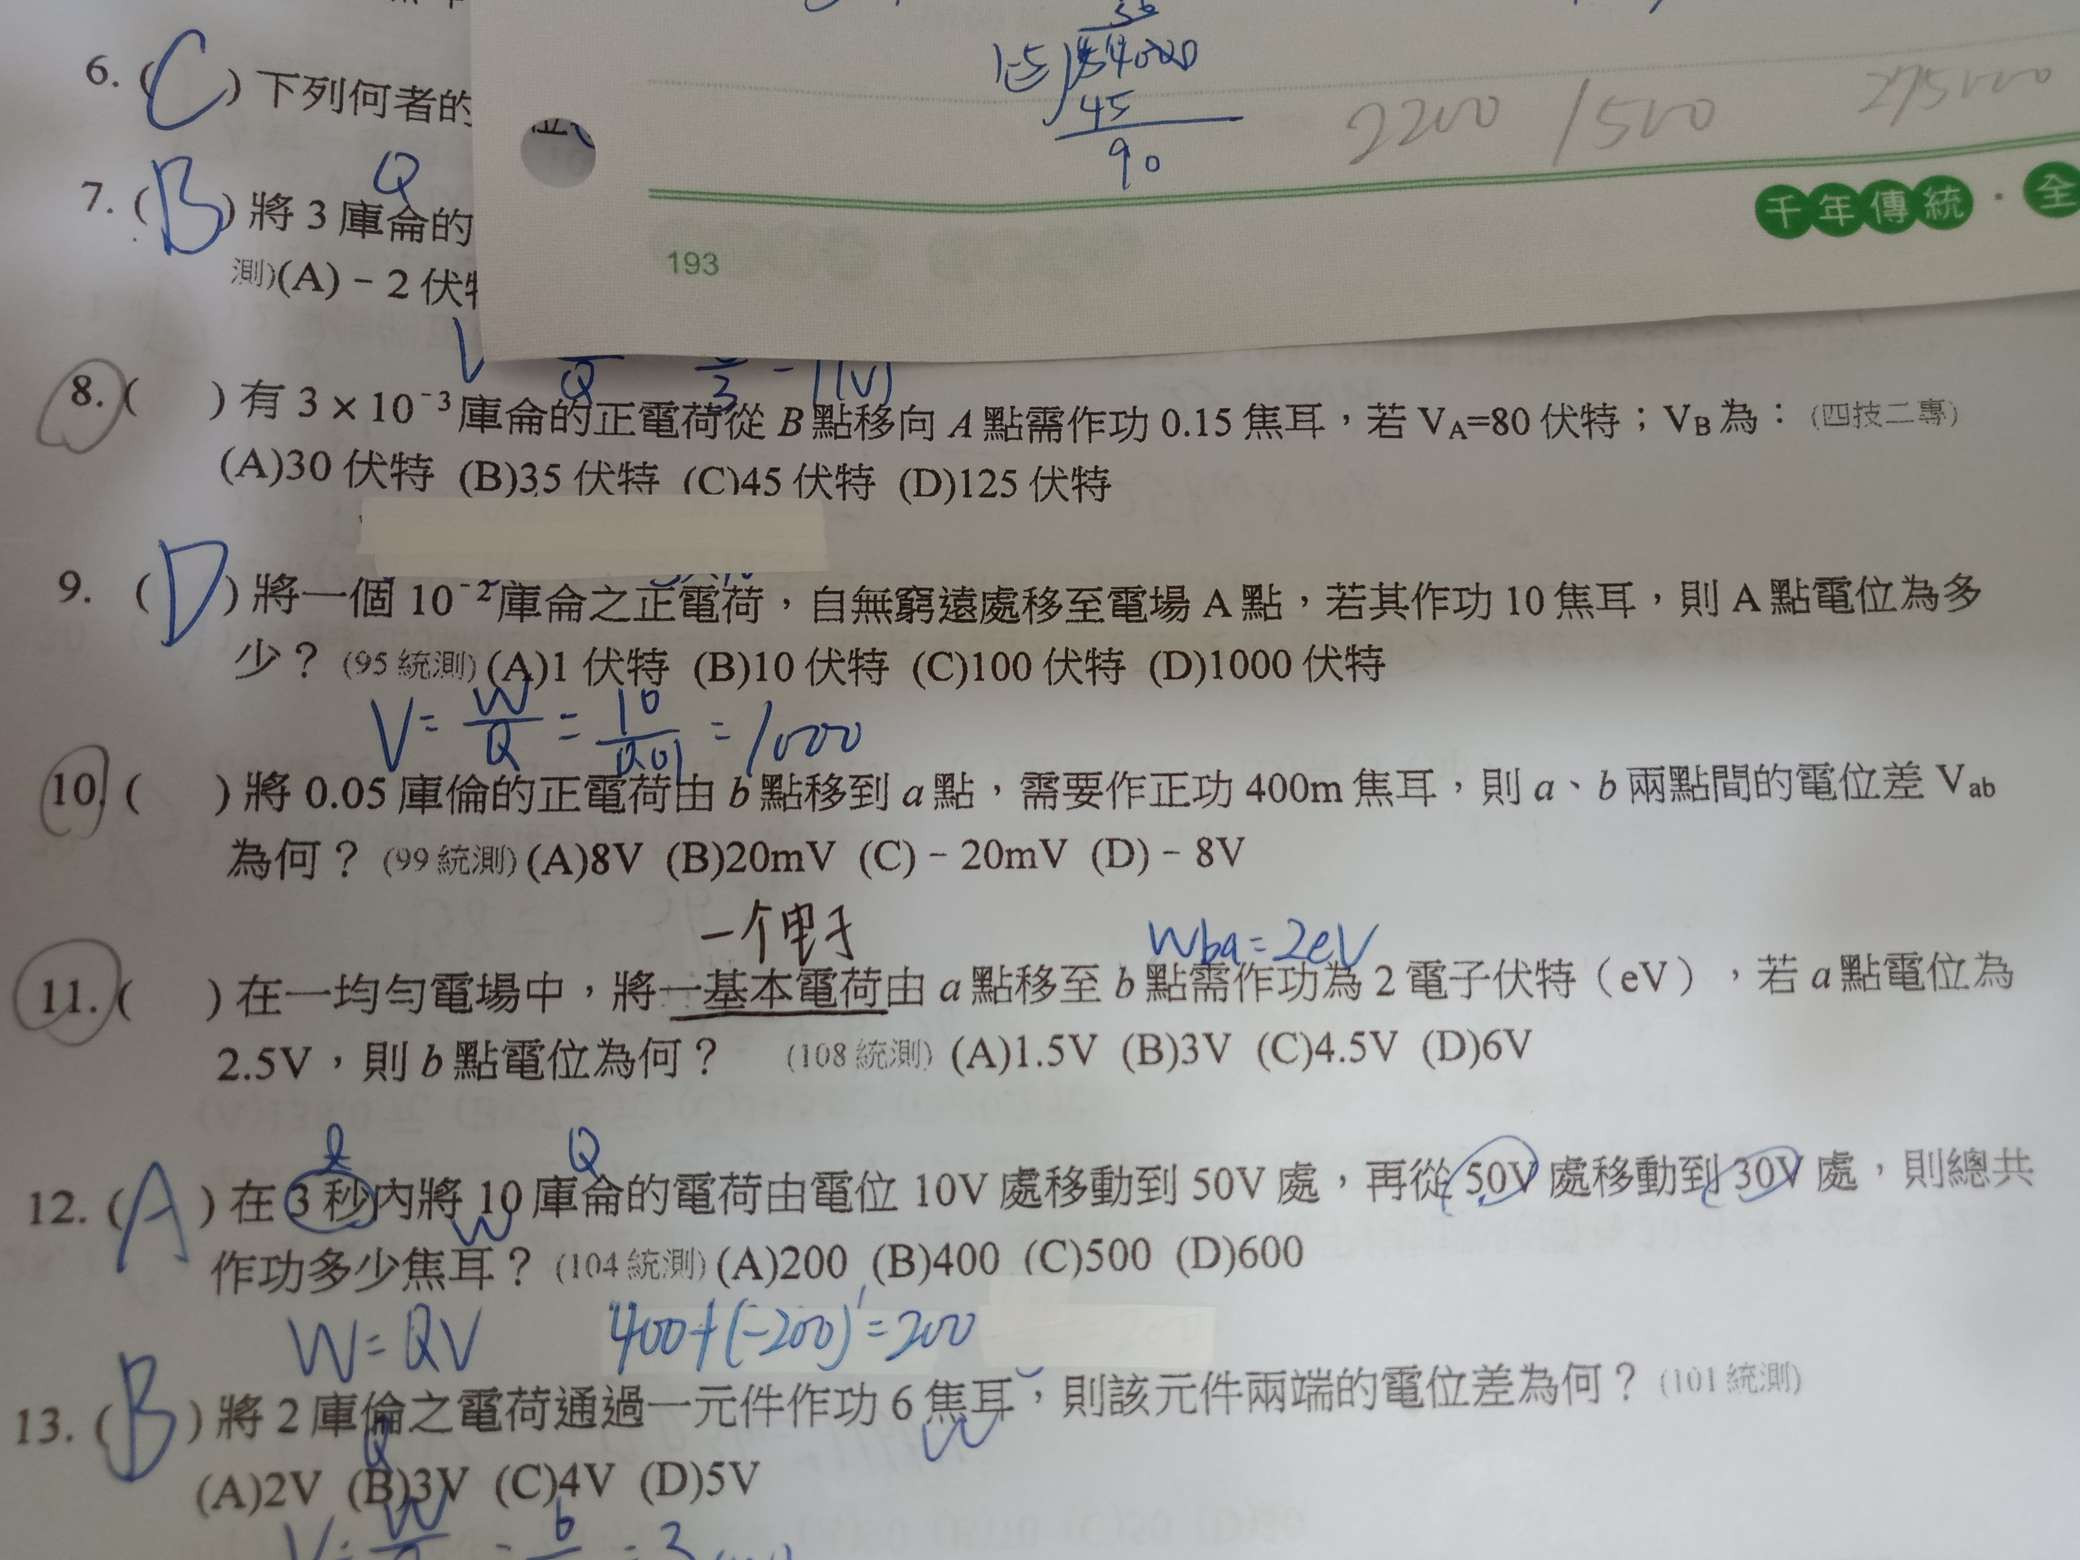 36
15 54000
45
90
2200 1500
千年傳統・全
193
6. (C) 下列何者的
Q
7. (B) 將 3 庫侖的
測)(A)﹣2 伏特
8. ( ) 有 3 × 10⁻³ 庫侖的正電荷從 B 點移向 A 點需作功 0.15 焦耳，若 V_A=80 伏特；V_B 為： (四技二專)
(A)30 伏特 (B)35 伏特 (C)45 伏特 (D)125 伏特
9. (D) 將一個 10⁻² 庫侖之正電荷，自無窮遠處移至電場 A 點，若其作功 10 焦耳，則 A 點電位為多
少？ (95 統測) (A)1 伏特 (B)10 伏特 (C)100 伏特 (D)1000 伏特
V = W/Q = 10/0.01 = 1000
10. ( ) 將 0.05 庫倫的正電荷由 b 點移到 a 點，需要作正功 400m 焦耳，則 a、b 兩點間的電位差 V_ab
為何？ (99 統測) (A)8V (B)20mV (C)﹣20mV (D)﹣8V
一个电子 Wba=2eV
11. ( ) 在一均勻電場中，將一基本電荷由 a 點移至 b 點需作功為 2 電子伏特（eV），若 a 點電位為
2.5V，則 b 點電位為何？ (108 統測) (A)1.5V (B)3V (C)4.5V (D)6V
Q
12. (A) 在 3 秒內將 10 庫侖的電荷由電位 10V 處移動到 50V 處，再從 50V 處移動到 30V 處，則總共
W
作功多少焦耳？ (104 統測) (A)200 (B)400 (C)500 (D)600
W=QV 400+(-200)=200
13. (B) 將 2 庫倫之電荷通過一元件作功 6 焦耳，則該元件兩端的電位差為何？ (101 統測)
Q W
(A)2V (B)3V (C)4V (D)5V